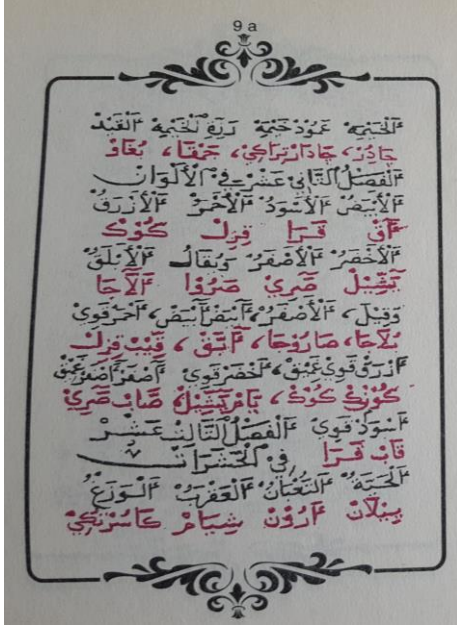 9 a
اَلْخَيْمَة عَمُودْ خَيْمَة رَزَّة لْخَيْمَة اَلْقَيْدْ
جَادِرْ، جَادَارْتِرَاكِي، جَمْقَا، بُغَاوْ
اَلْفَصْلُ الثَّانِي عَشَرْ فِي اَلْأَلْوَانِ
اَلْأَبْيَضْ اَلْأَسْوَدُ اَلْأَحْمَرْ اَلْأَزْرَقُ
آقْ قَرَا قِزِلْ كُوكْ
اَلْأَخْضَرُ اَلْأَصْفَرُ وَيُقَالُ اَلْأَبْلَقُ
يَشِيلْ صَرِيْ صَرُوا اَلَاجَا
وَقِيلَ، اَلْأَصْفَرُ، اَبْيَضْ اَبْيَضْ، اَحْمَرْ قَوِيْ
بُلَاجَا، صَارُوجَا، اَبَقْ، قِيبْ قِزِلْ
اَزْرَقْ قَوِيْ عَمِيقْ، اَخْضَرْ قَوِيْ اَصْفَرْ اَصْفَرْ عَمِيقْ
كُوكْ، يَامْ يَشِيلْ، صَابْ صَرِيْ
اَسْوَدْ قَوِيْ اَلْفَصْلُ الثَّالِثْ عَشَرْ
قَابْ قَرَا فِي اَلْحَشَرَاتِ
اَلْحَيَّةُ اَلثُّعْبَانُ اَلْعَقْرَبُ اَلْوَزَغُ
يِيلَانْ اَرُونْ شِيَامْ كَاسَرْتَكِي